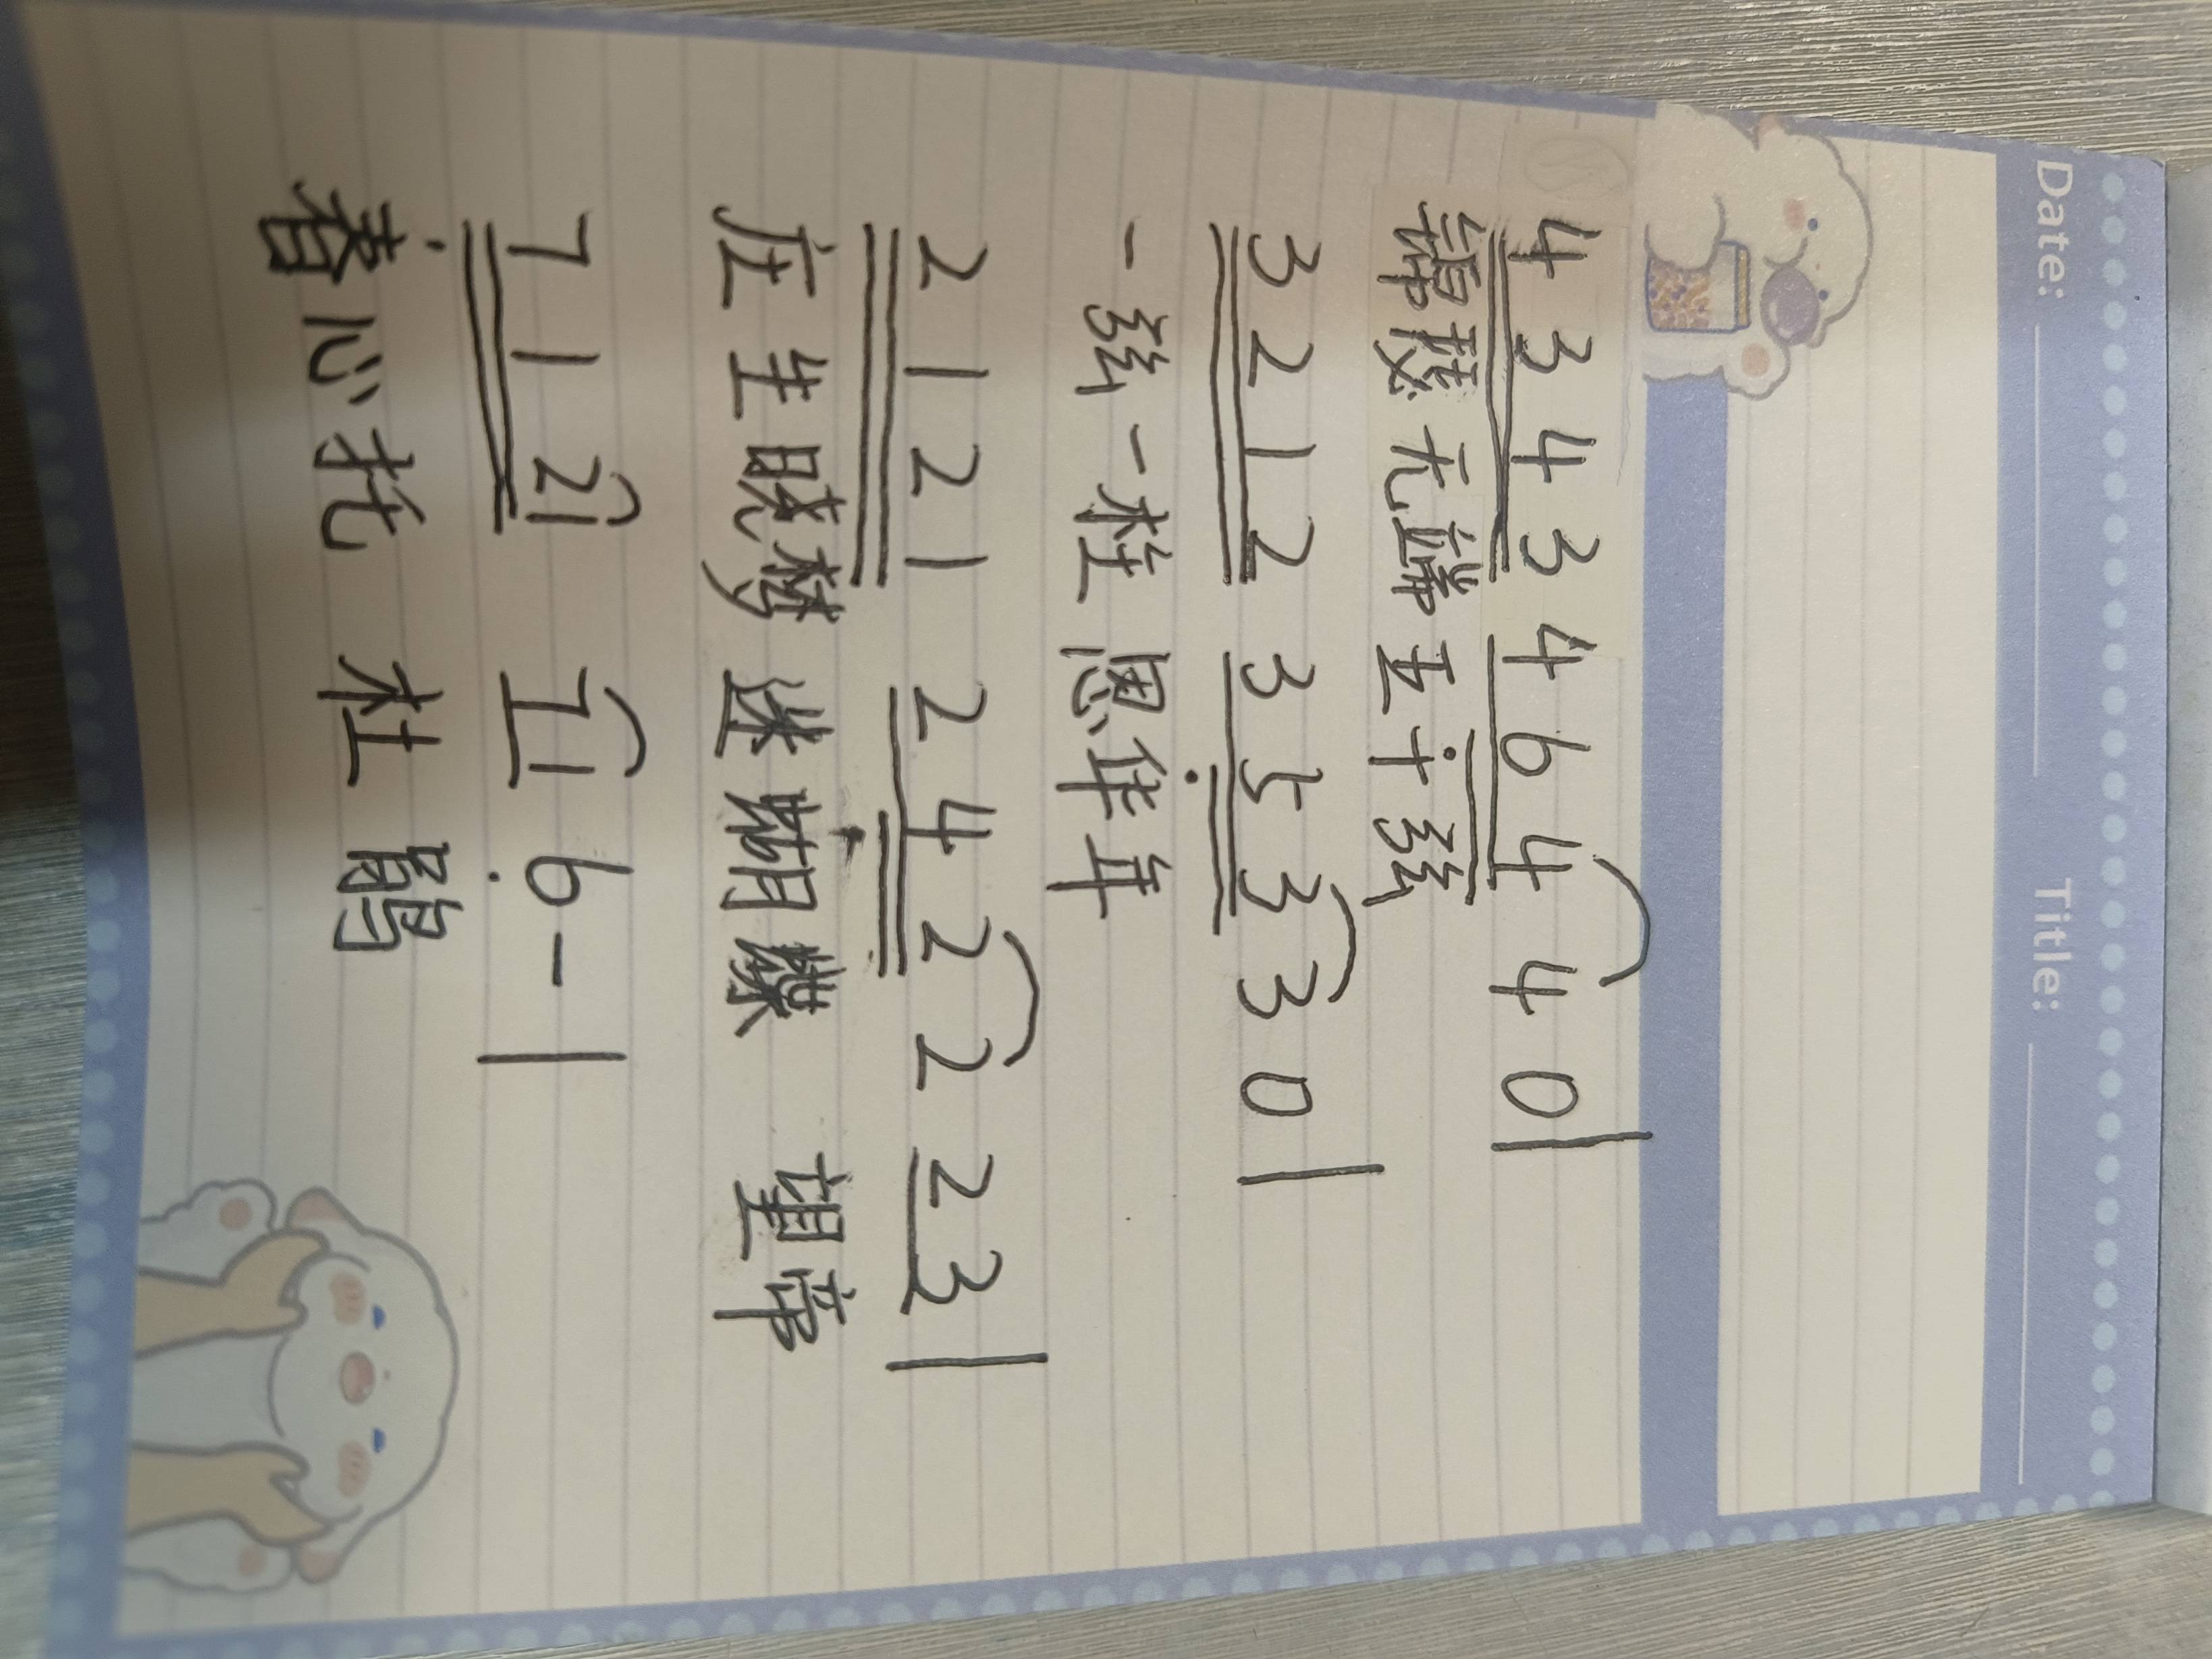 Date: Title:
4 3 4 3 4 6 4 4 0 |
锦瑟无端五十弦
3 2 1 2 3 5 3 3 0 |
一弦一柱思华年
2 1 2 1 2 4 2 2 2 3 |
庄生晓梦迷蝴蝶 望帝
7 1 2 1 7 1 6 - |
春心托杜鹃